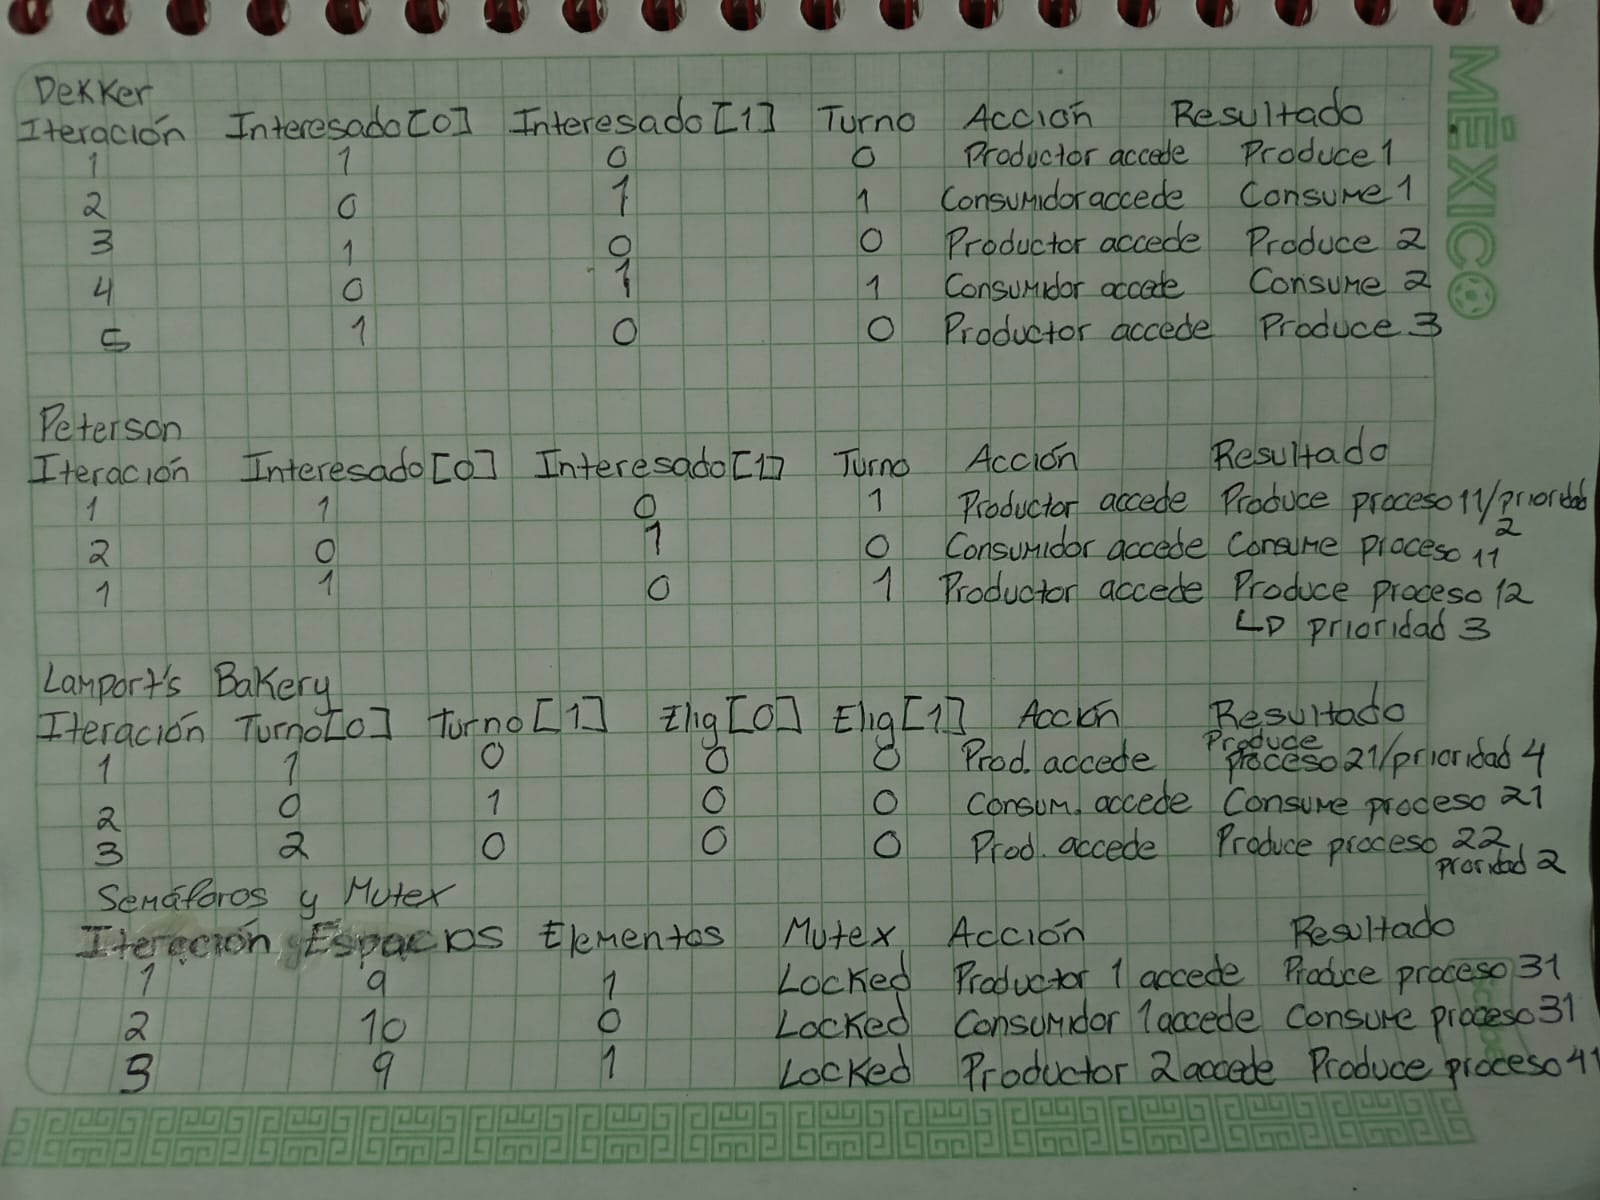 Dekker
Iteración Interesado[0] Interesado[1] Turno Acción Resultado
1 1 0 0 Productor accede Produce 1
2 0 1 1 Consumidor accede Consume 1
3 1 0 0 Productor accede Produce 2
4 0 1 1 Consumidor accede Consume 2
5 1 0 0 Productor accede Produce 3
Peterson
Iteración Interesado[0] Interesado[1] Turno Acción Resultado
1 1 0 1 Productor accede Produce proceso 11/prioridad
2
2 0 1 0 Consumidor accede Consume proceso 11
1 1 0 1 Productor accede Produce proceso 12
prioridad 3
Lamport's Bakery
Iteración Turno[0] Turno[1] Elig[0] Elig[1] Acción Resultado
Produce
1 1 0 0 0 Prod. accede proceso 21/prioridad 4
2 0 1 0 0 Consum. accede Consume proceso 21
3 2 0 0 0 Prod. accede Produce proceso 22
prioridad 2
Semáforos y Mutex
Iteración Espacios Elementos Mutex Acción Resultado
1 9 1 Locked Productor 1 accede Produce proceso 31
2 10 0 Locked Consumidor 1 accede Consume proceso 31
3 9 1 Locked Productor 2 accede Produce proceso 41
MÉXICO